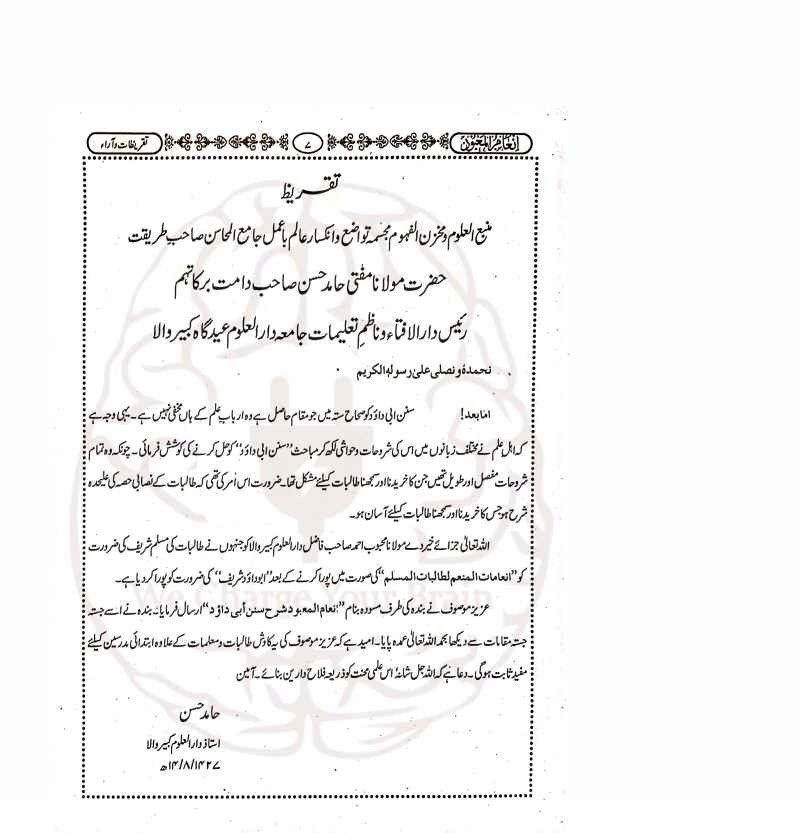 انعام المعبود
۷
تقریظات وآراء
تقریظ
منبع العلوم ومخزن الفہوم مجسمہ تواضع وانکسار عالم باعمل جامع المحاسن صاحب طریقت
حضرت مولانا مفتی حامد حسن صاحب دامت برکاتہم
رئیس دارالافتاء وناظمِ تعلیمات جامعہ دارالعلوم عیدگاہ کبیر والا
نحمدہٗ ونصلی علیٰ رسولہٖ الکریم
اما بعد! سنن ابی داؤد کو صحاح ستہ میں جو مقام حاصل ہے وہ ارباب علم کے ہاں مخفی نہیں ہے۔ یہی وجہ ہے
کہ اہل علم نے مختلف زبانوں میں اس کی شروحات وحواشی لکھ کر مباحث ”سنن ابی داؤد“ کو حل کرنے کی کوشش فرمائی۔ چونکہ وہ تمام
شروحات مفصل اور طویل تھیں جن کا خریدنا اور سمجھنا طالبات کیلئے مشکل تھا۔ ضرورت اس اَمر کی تھی کہ طالبات کے نصابی حصہ کی علیحدہ
شرح ہو جس کا خریدنا اور سمجھنا طالبات کیلئے آسان ہو۔
اللہ تعالیٰ جزائے خیر دے مولانا محبوب احمد صاحب فاضل دارالعلوم کبیر والا کو جنہوں نے طالبات کی مسلم شریف کی ضرورت
کو ”انعامات المنعم لطالبات المسلم“ کی صورت میں پورا کرنے کے بعد ”ابوداؤد شریف“ کی ضرورت کو پورا کر دیا ہے۔
عزیز موصوف نے بندہ کی طرف مسودہ بنام ”انعام المعبود شرح سنن أبی داؤد“ ارسال فرمایا۔ بندہ نے اسے جستہ
جستہ مقامات سے دیکھا بحمد اللہ تعالیٰ عمدہ پایا۔ امید ہے کہ عزیز موصوف کی یہ کاوش طالبات ومعلمات کے علاوہ ابتدائی مدرسین کیلئے
مفید ثابت ہوگی۔ دعا ہے کہ اللہ جل شانہٗ اس علمی محنت کو ذریعہ فلاح دارین بنائے۔ آمین
We Charge Your Brain
حامد حسن
استاذ دارالعلوم کبیر والا
۱۴/۸/۱۴۲۷ھ